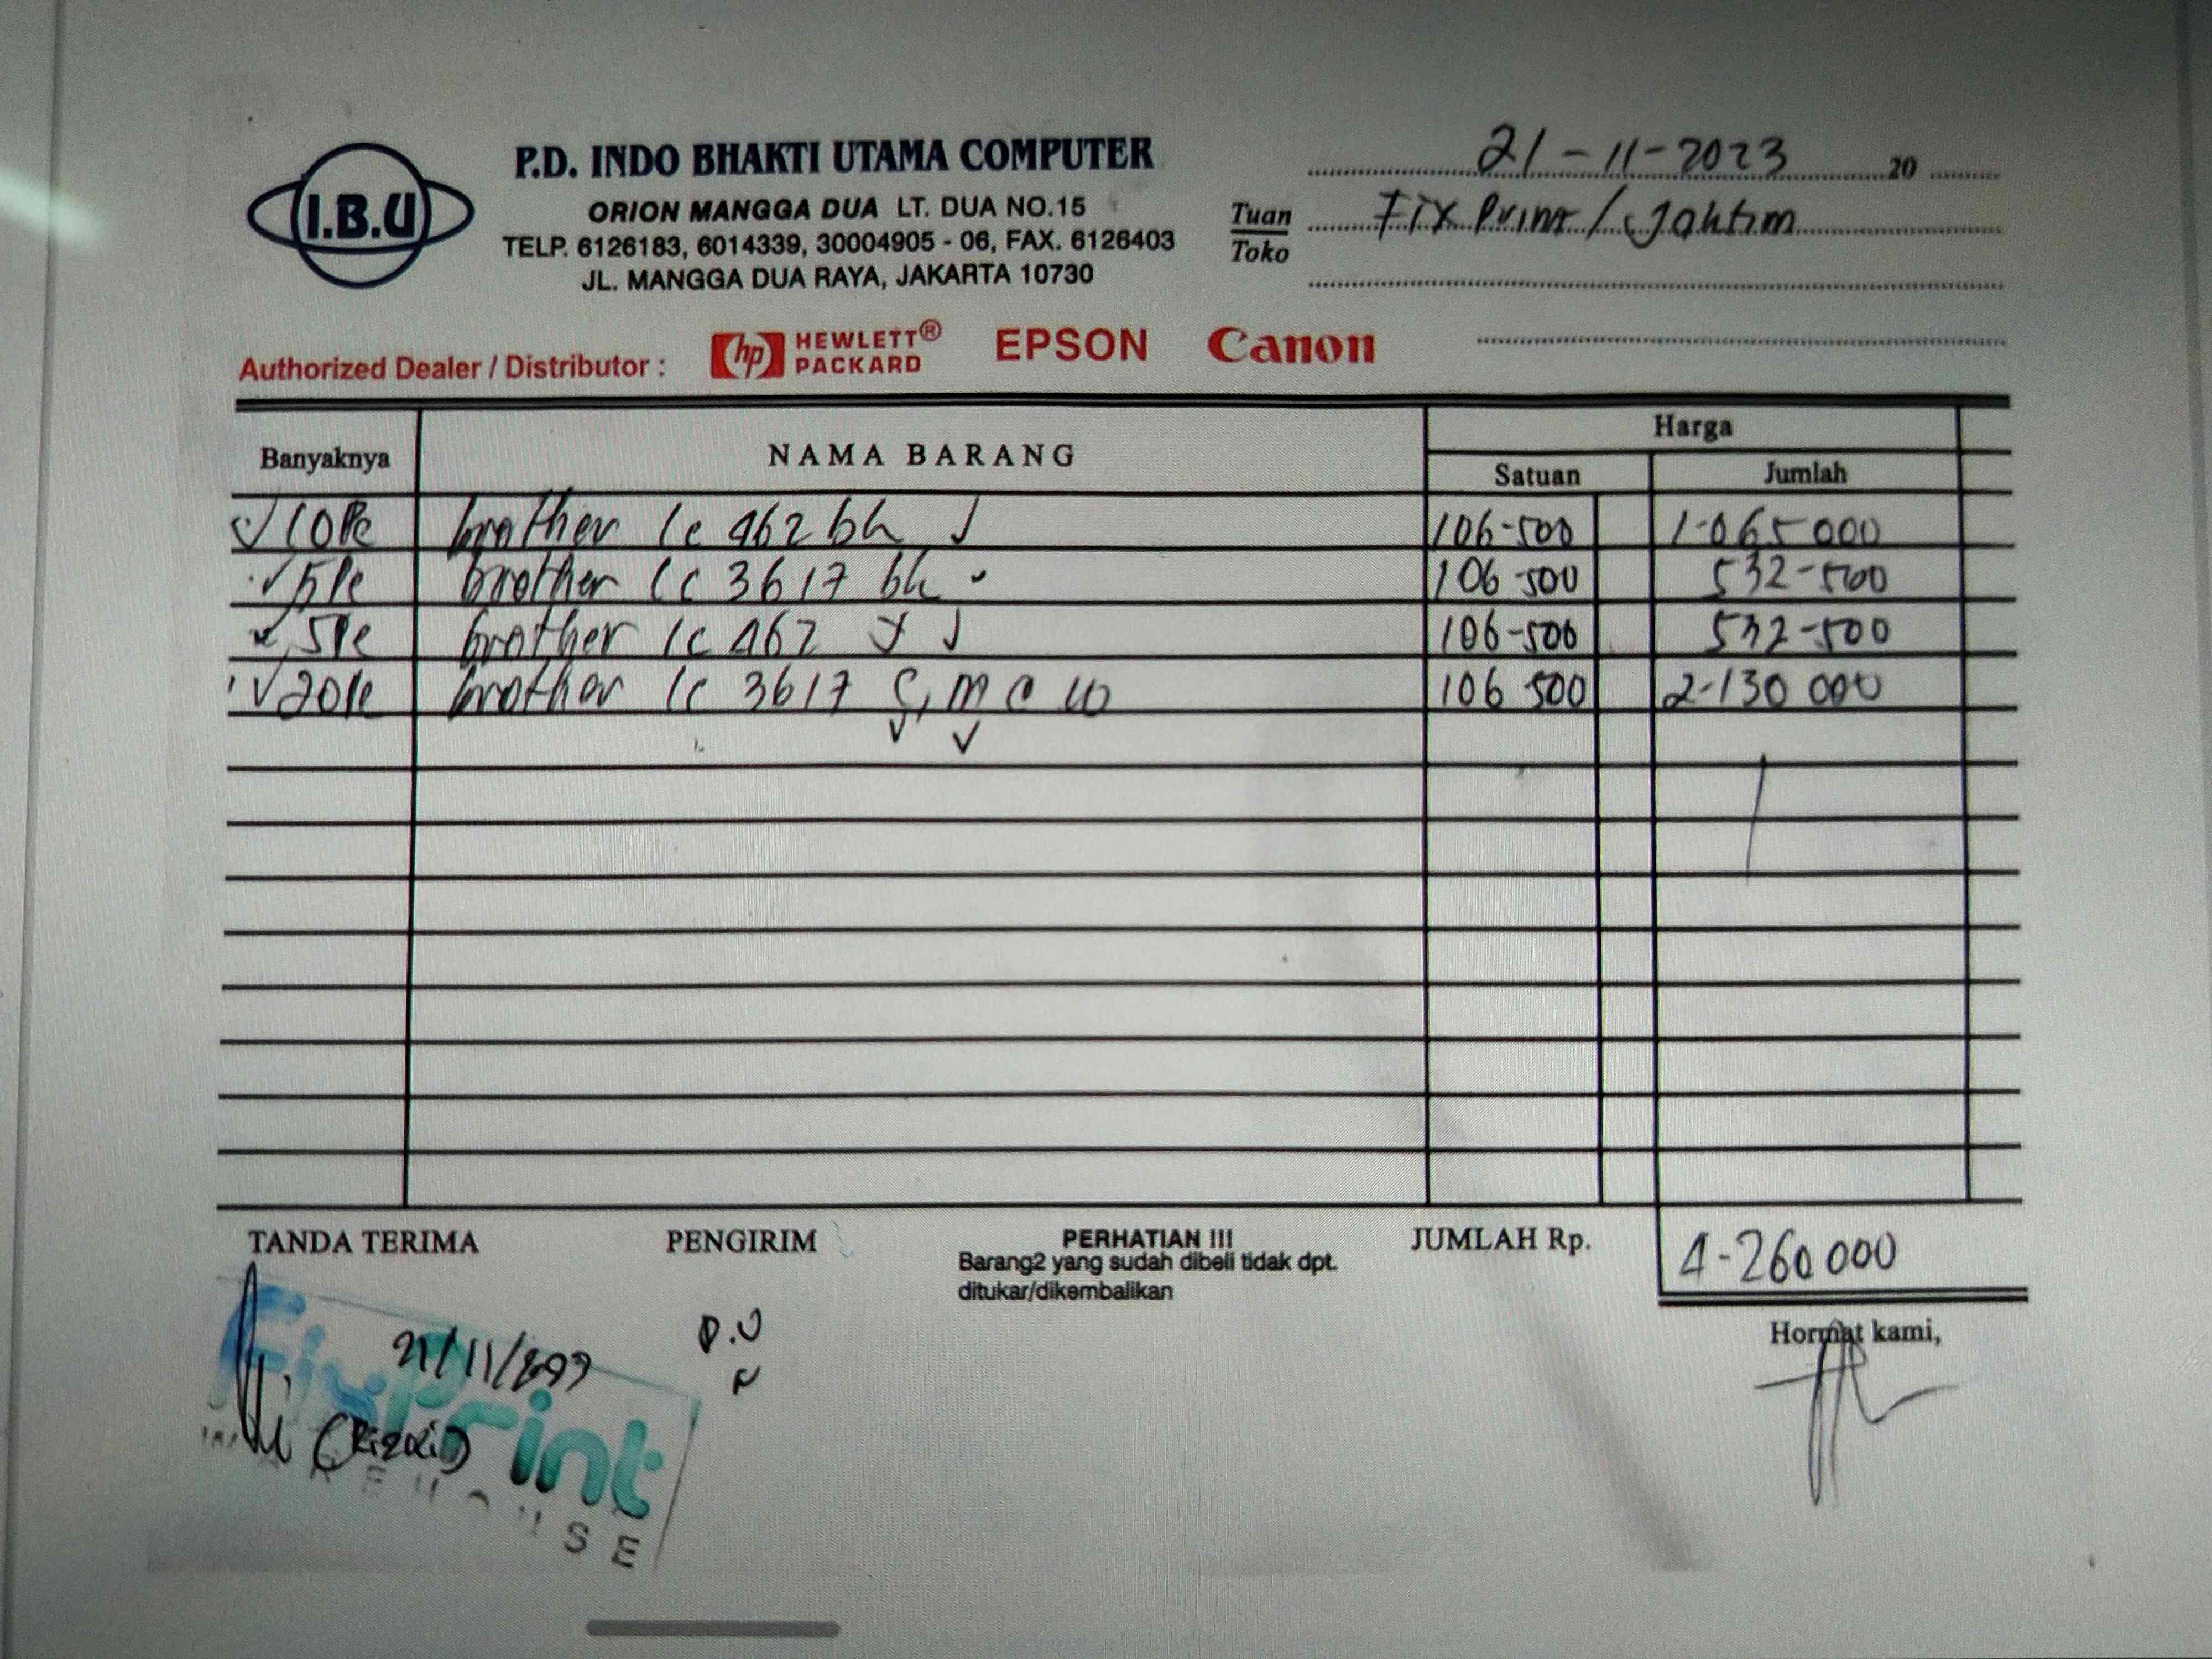 I.B.U
P.D. INDO BHAKTI UTAMA COMPUTER
ORION MANGGA DUA LT. DUA NO.15
TELP. 6126183, 6014339, 30004905 - 06, FAX. 6126403
JL. MANGGA DUA RAYA, JAKARTA 10730
21-11-2023 20
Tuan
Toko
Fix Print / Jaktim
Authorized Dealer / Distributor : hp HEWLETT® PACKARD EPSON Canon
Banyaknya NAMA BARANG Harga
Satuan Jumlah
10 Pc brother lc 462 bk 106-500 1-065 000
5 Pc brother lc 3617 bk 106-500 532-500
5 Pc brother lc 462 Y 106-500 532-500
20 Pc brother lc 3617 C, m @ 10 106 500 2-130 000
TANDA TERIMA PENGIRIM PERHATIAN !!! JUMLAH Rp. 4-260 000
Barang2 yang sudah dibeli tidak dpt.
ditukar/dikembalikan
Hormat kami,
21/11/2023
FixPrint
(Rizki)
WAREHOUSE